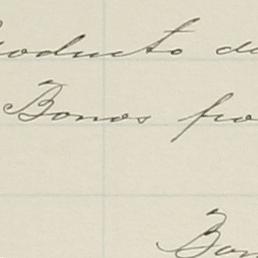 Producto de
Bonos fro
Bon